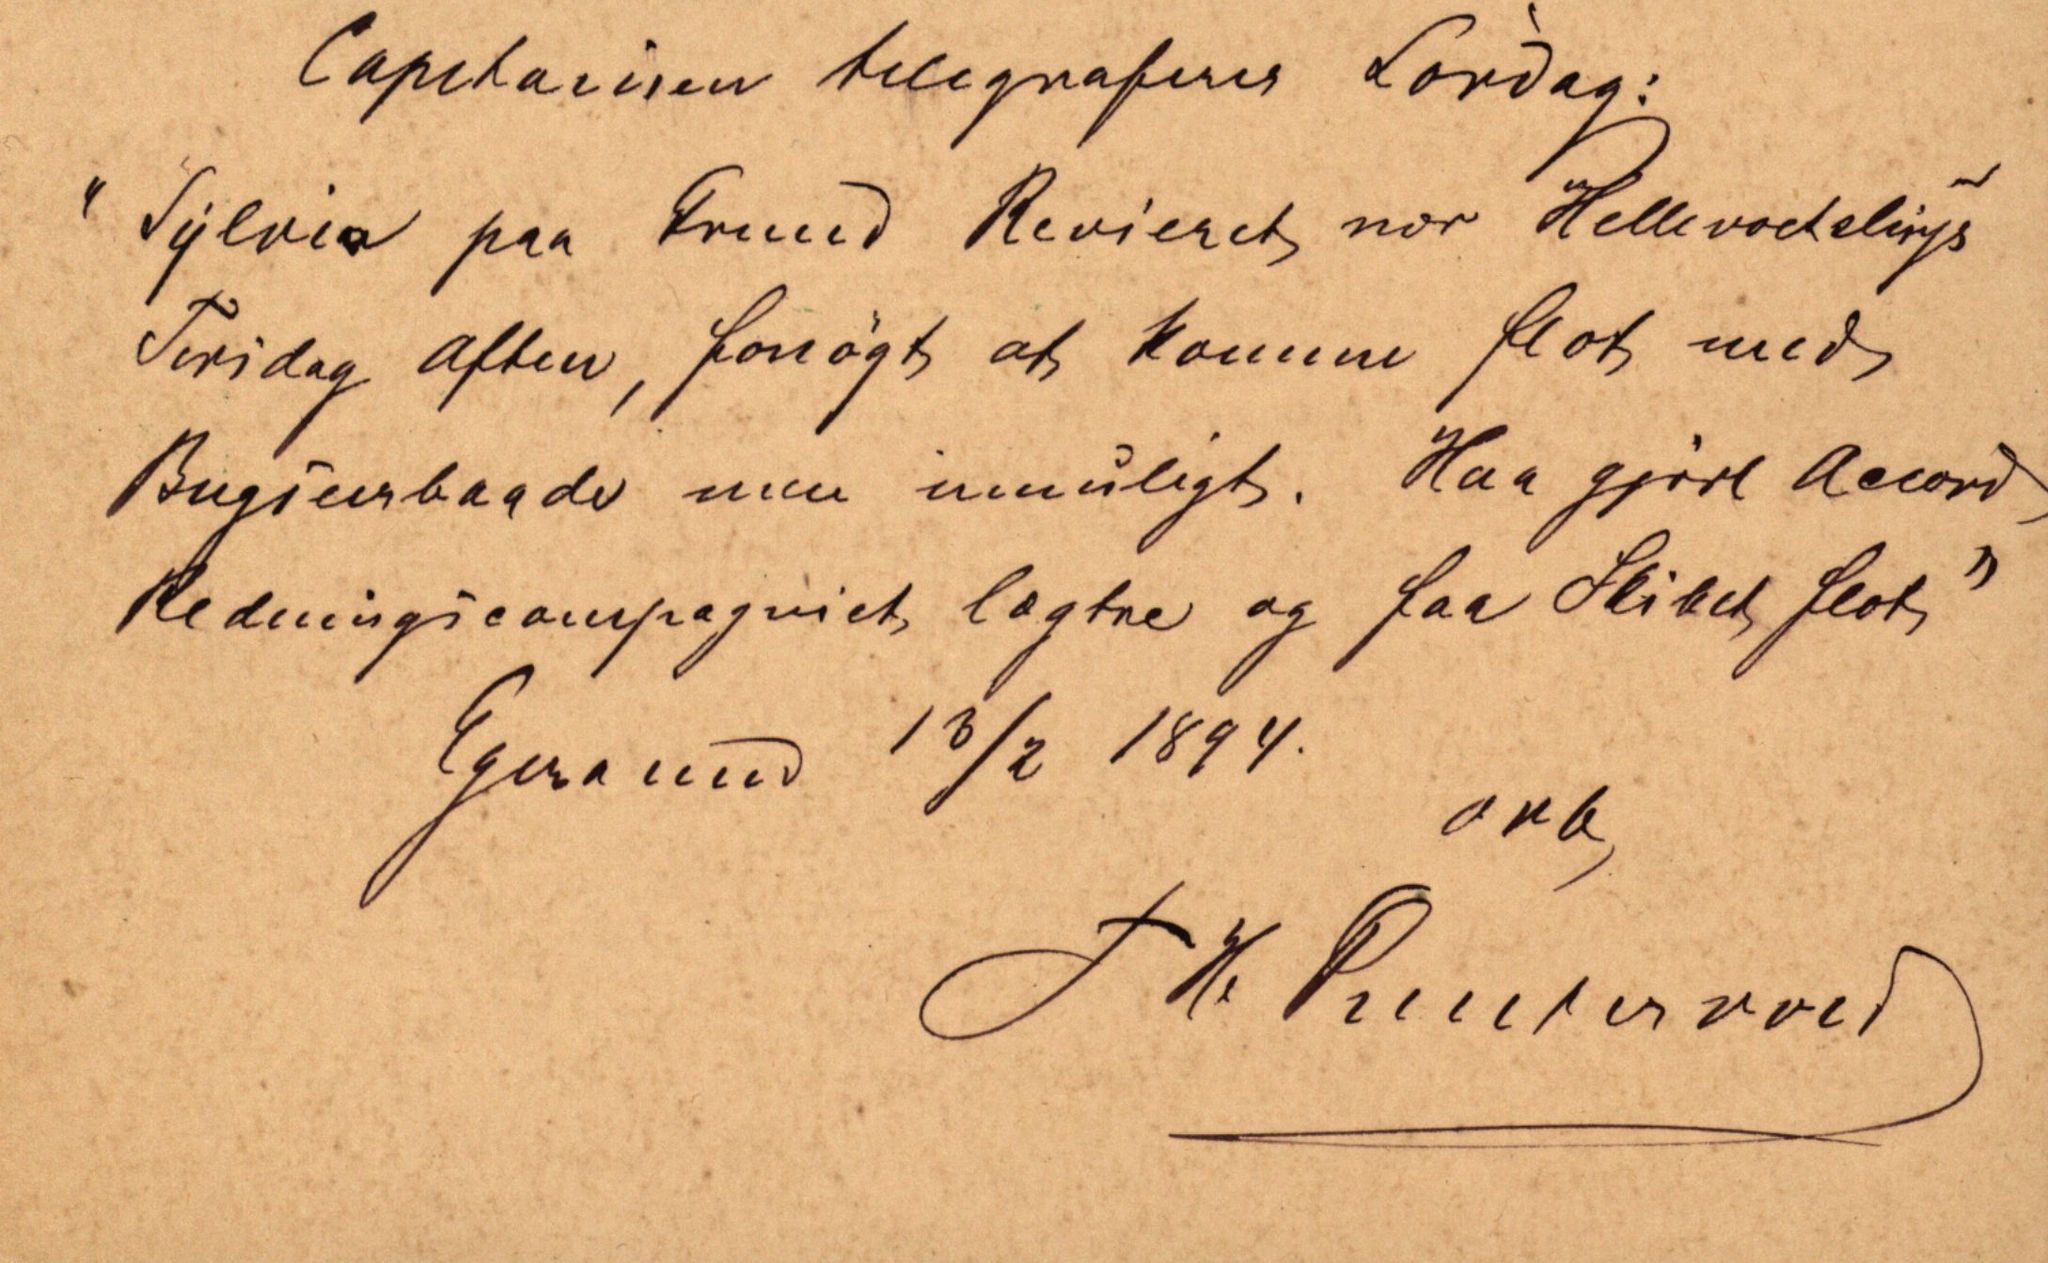 Capitainen telegraferer Lördag:
"Sylvia paa Grund Revieret nær Hellevoetsluys
Tirsdag Aften, forsögt at komme flot med
Bugserbaade men umuligt. Har gjört Accord
Redningscompagniet lægtre og faa Skibet flot"
Egersund 13/2 1894.
ærb